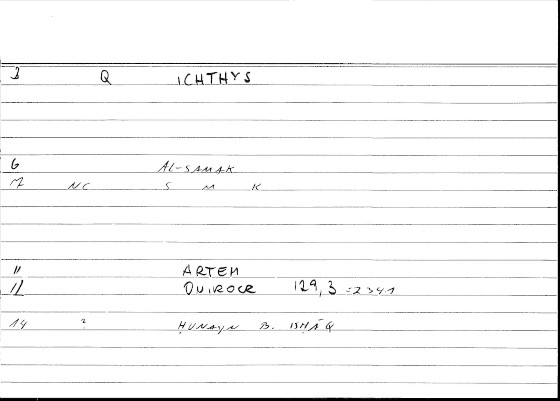 3 Q ICHTHYS
6 AL-SAMAK
12 NC S M K
" ARTEM
11 QUIROCR 129,3 =2341
14 ? ḤUNAYN B. ISḤĀQ